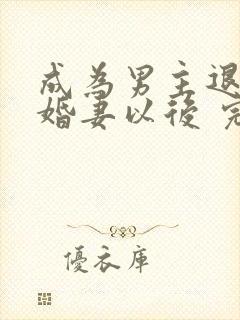 成為男主退
婚妻以後 完
優衣庫